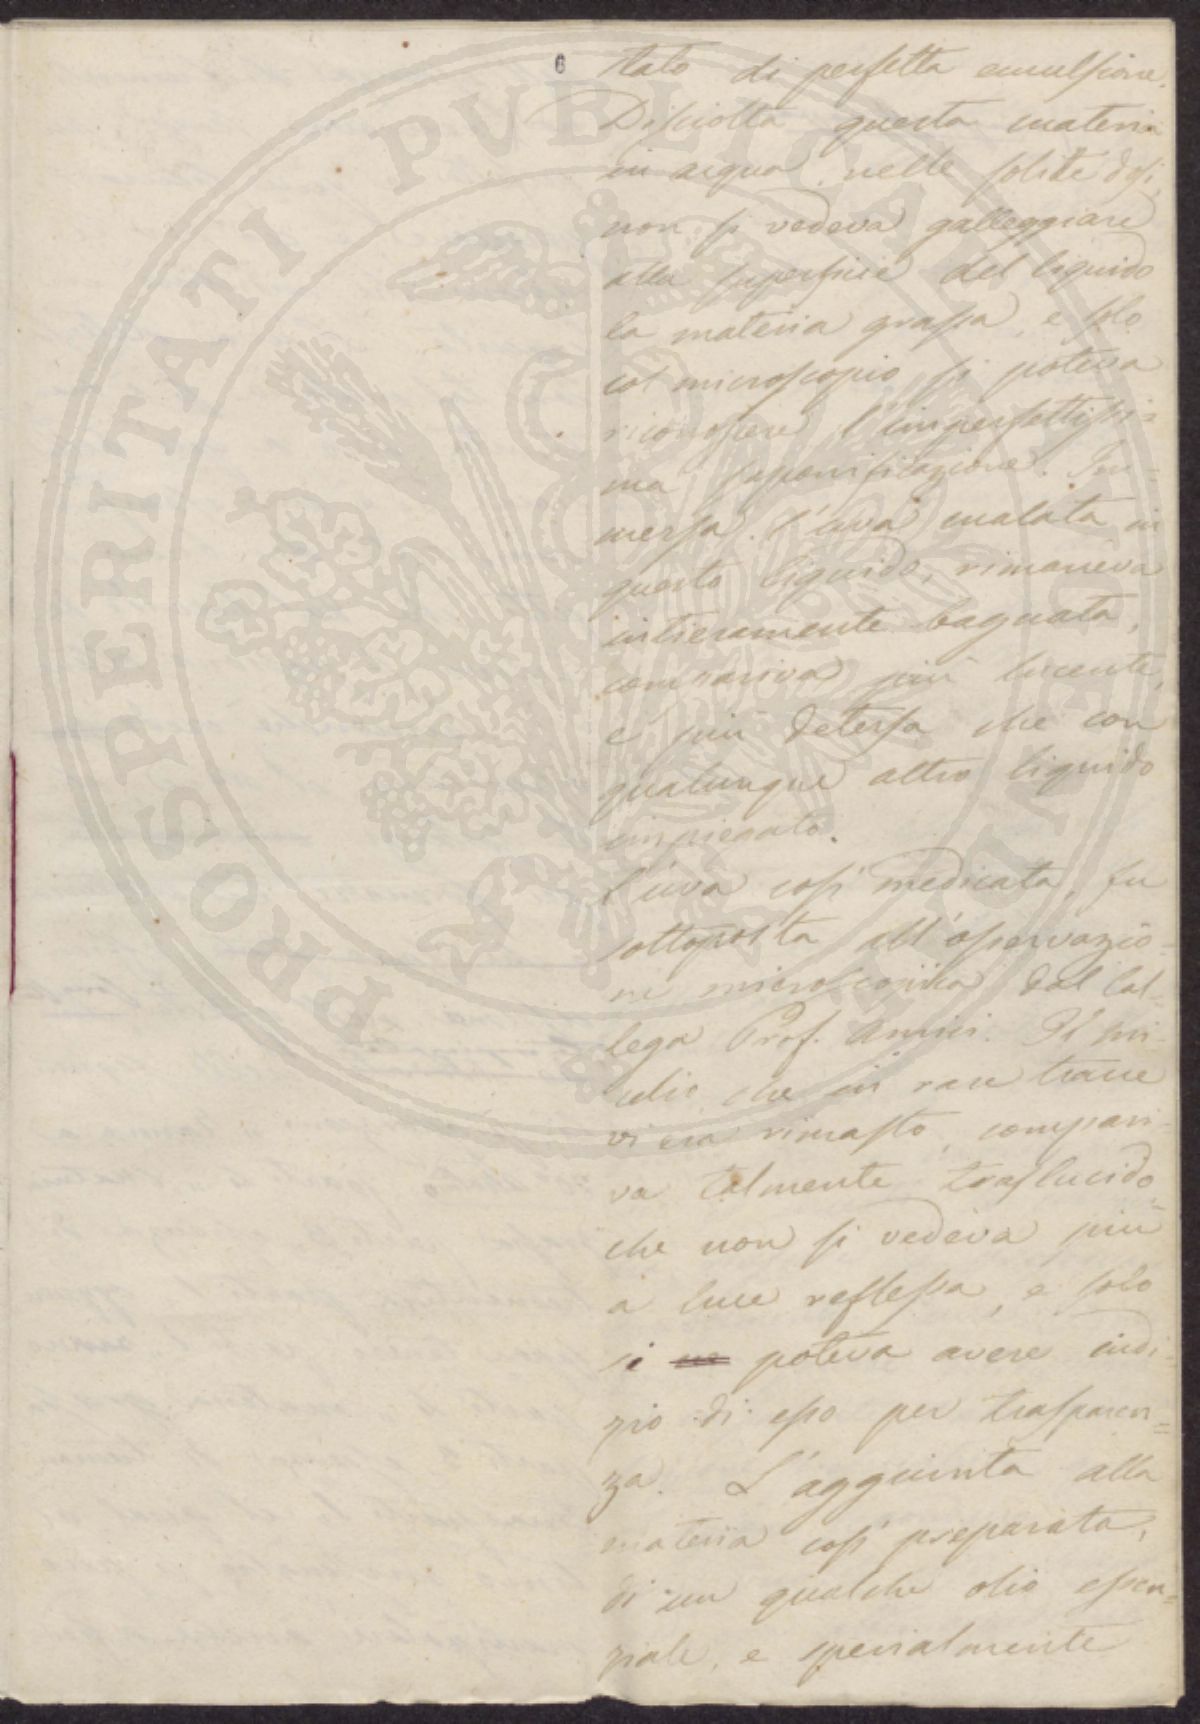 stato di perfetta emulsione.
Disciolta questa materia
in acqua nelle solite dosi,
non si vedeva galleggiare
alla superficie del liquido
la materia grassa, e solo
col microscopio si poteva
riconoscere l'imperfettissi=
ma saponificazione. Im=
mersa l'uva malata in
questo liquido, rimaneva
intieramente bagnata,
compariva più lucente,
e più detersa che con
qualunque altro liquido
impiegato.
L'uva così medicata, fu
sottoposta all'osservazio=
ne microscopica dal Col=
lega Prof. Amici. Il mi=
celio che in rare tracce
vi era rimasto, compari=
va talmente traslucido,
che non si vedeva più
a luce reflessa, e solo
si ne poteva avere indi=
zio di esso per trasparen=
za. L'aggiunta alla
materia così preparata,
di un qualche olio essen=
ziale, e specialmente
PROSPERITATI PUBLICAE AUGENDAE